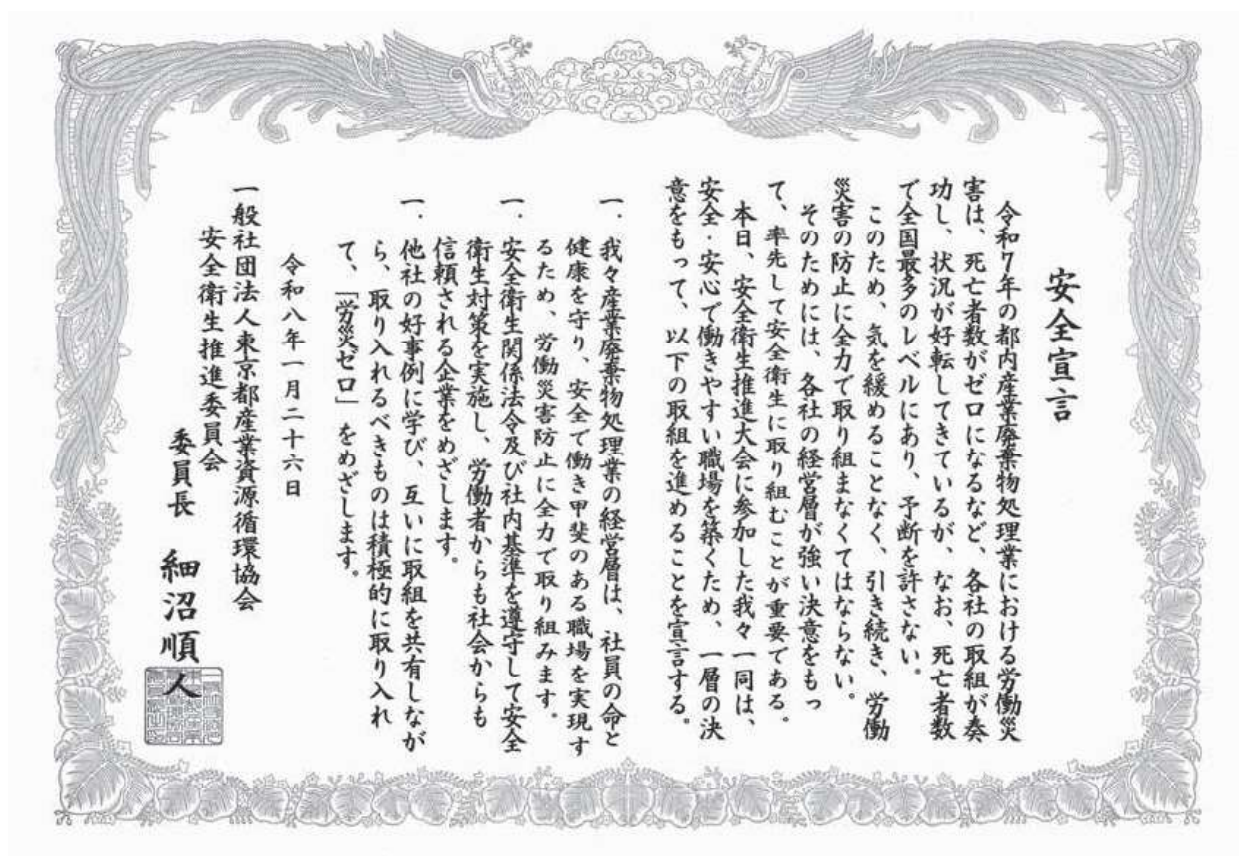 安全宣言
令和7年の都内産業廃棄物処理業における労働災
害は、死亡者数がゼロになるなど、各社の取組が奏
功し、状況が好転してきているが、なお、死亡者数
で全国最多のレベルにあり、予断を許さない。
このため、気を緩めることなく、引き続き、労働
災害の防止に全力で取り組まなくてはならない。
そのためには、各社の経営層が強い決意をもっ
て、率先して安全衛生に取り組むことが重要である。
本日、安全衛生推進大会に参加した我々一同は、
安全・安心で働きやすい職場を築くため、一層の決
意をもって、以下の取組を進めることを宣言する。
一．我々産業廃棄物処理業の経営層は、社員の命と
健康を守り、安全で働き甲斐のある職場を実現す
るため、労働災害防止に全力で取り組みます。
一．安全衛生関係法令及び社内基準を遵守して安全
衛生対策を実施し、労働者からも社会からも
信頼される企業をめざします。
一．他社の好事例に学び、互いに取組を共有しなが
ら、取り入れるべきものは積極的に取り入れ
て、「労災ゼロ」をめざします。
令和八年一月二十六日
一般社団法人東京都産業資源循環協会
安全衛生推進委員会
委員長 細沼順人